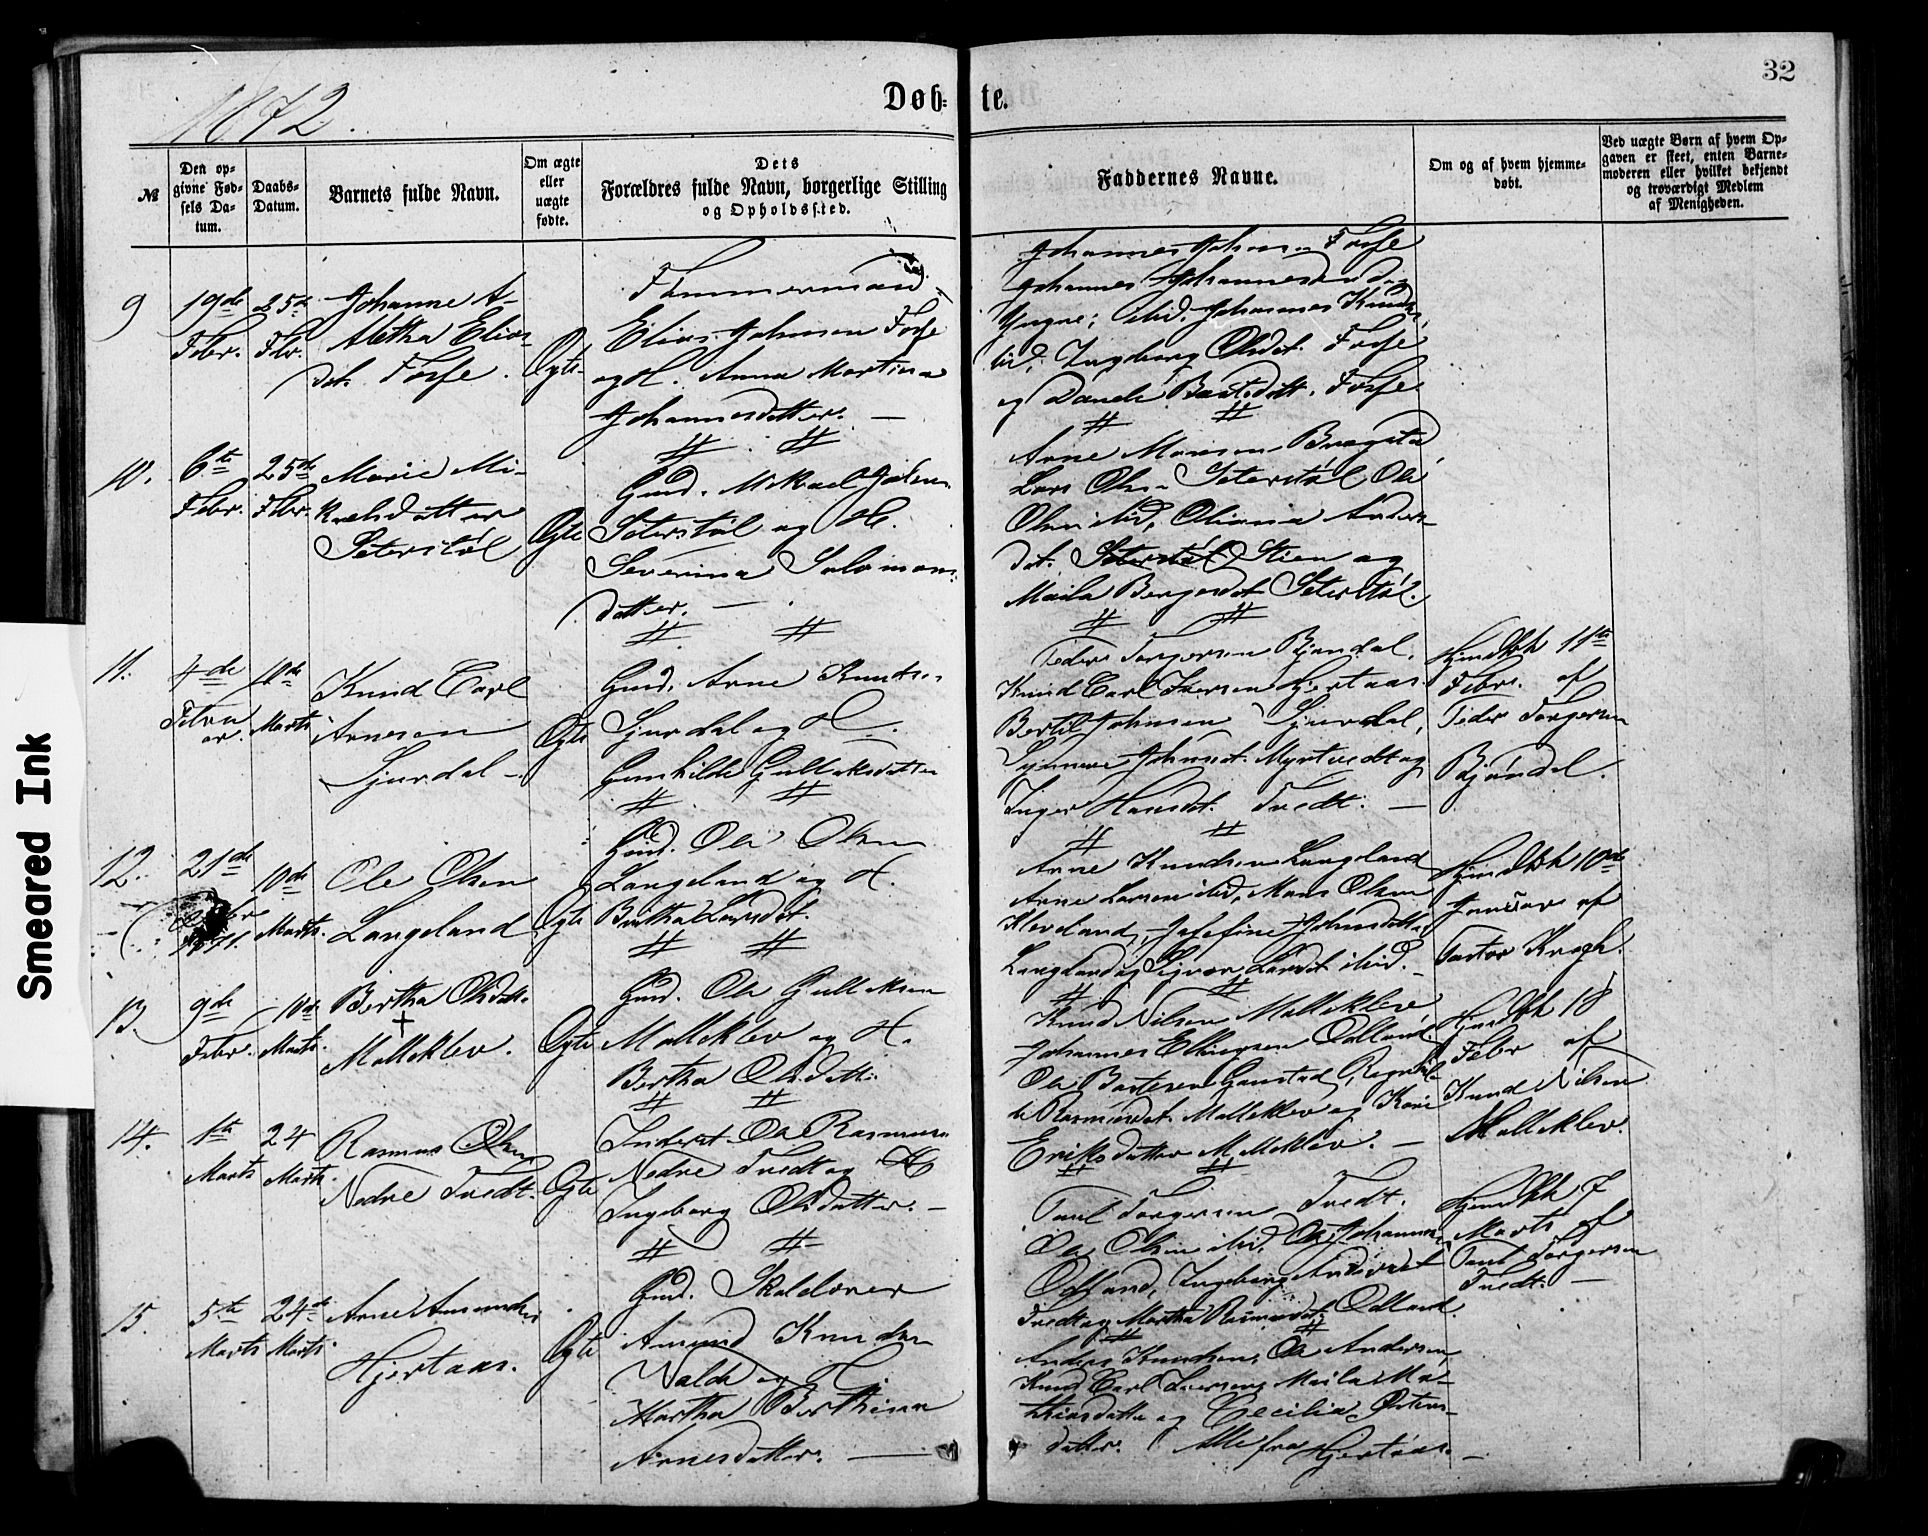 1872.
Døb-
te.
32
№
Den op-
givne Fød-
sels Da-
tum.
Daabs-
Datum.
Barnets fulde Navn.
Om ægte
eller
uægte
fødte.
Dets
Forældres fulde Navn, borgerlige Stilling
og Opholdssted.
Faddernes Navne.
Om og af hvem hjemme-
døbt.
Ved uægte Børn af hvem Op-
gaven er skeet, enten Barne-
moderen eller hvilket bekjendt
og troværdigt Medlem
af Menigheden.
Smeared Ink
9
19de
Febr.
25de
Fbr.
Johanne A-
letha Elias
dtr. Fosse.
Ægte
Tømmermand
Elias Johnsen Fosse
og H. Anna Martina
Johannesdatter. —
Johannes Johns. Fosse
Johannes Johannesen
ibid. Johannes Knuds.
ibid, Ingeborg Olsdtr. Fosse
og Baardsdatt. Fosse.
10.
6te
Febr.
25de
Febr.
Marie Mi-
kaelsdatter
Seterstöl
Ægte
Gmd. Mikael Johns.
Seterstöl og H.
Severina Salomons-
datter. —
Arne Monsen Brogstad,
Lars Olsen Seterstöl Ole
Olsen ibid, Oliana Anders-
dtr. Stien og
Maila Bergesdtr Seterstöl.
11.
4de
Febru
ar.
10de
Marts
Knud Carl
Arnesen
Sjurdal —
Ægte
Gmd. Arne Knudsen
Sjurdal og H.
Gunhilde Gulleksdatter
Peder Torgersen Bjöndal,
Knud Carl Iversen Hjertaas
Bertil Johnsen Sjurdal,
Synneve Johnsdt. Myrtvedt og
Inger Hansdt. Tvedt. —
Hjemdöbt 11te
Febr. af
Peder Torgersen
Bjöndal.
12.
21de
1871.
10de
Marts.
Ole Olsen
Langeland
Ægte
Gmd. Ole Olsen
Langeland og H.
Bertha Larsdt.
Arne Knudsen Langeland
Arne Larsen ibid, Mons Olsen
Kleveland, Josefine Johnsdatter
Langeland og Larsdt ibid. —
Hjemdöbt 10de
Januar af
Pastor Kragh.
13.
9de
Febr.
10de
Marts.
Bertha Olsdtr.
†
Mölleklev.
Ægte
Gmd. Ole Gulleksen
Mölleklev og H.
Bertha Olsdatter.
Knud Nilsen Mölleklev
Johannes Ellingsen Odland
Ole Bartesen Gaustad, Ragnhil-
de Rasmusdt. Mölleklev og Kari
Eriksdatter Mölleklev. —
Hjemdöbt 18
Febr af
Knud Nilsen
Mölleklev.
14.
1te
Marts
24
Marts.
Rasmus Olsen
Nedre Tvedt.
Ægte
Inderst Ole Rasmusen
Nedre Tvedt og H
Ingeborg Olsdatter. —
Paul Torgersen Tvedt.
Ole Olsen ibid, Ole Johannes.
Odland, Ingeborg Andersdt
Tvedt og Martha Rasmusdt, Odland.
Hjemdöbt 7
Marts af
Paul Torgersen
Tvedt. —
15.
5te
Marts
24de
Marts
Arne Amundsen
Hjertaas.
Ægte
Gmd. Skoldover
Amund Knudsen
Valde og H.
Martha Berthina
Arnesdatter. —
Anders Knudsen, Ole Andersen,
Knud Carl Iversen, Maila Ma-
thiasdatter og Cecilia Östens-
datter. Alle fra Hjertaas. —